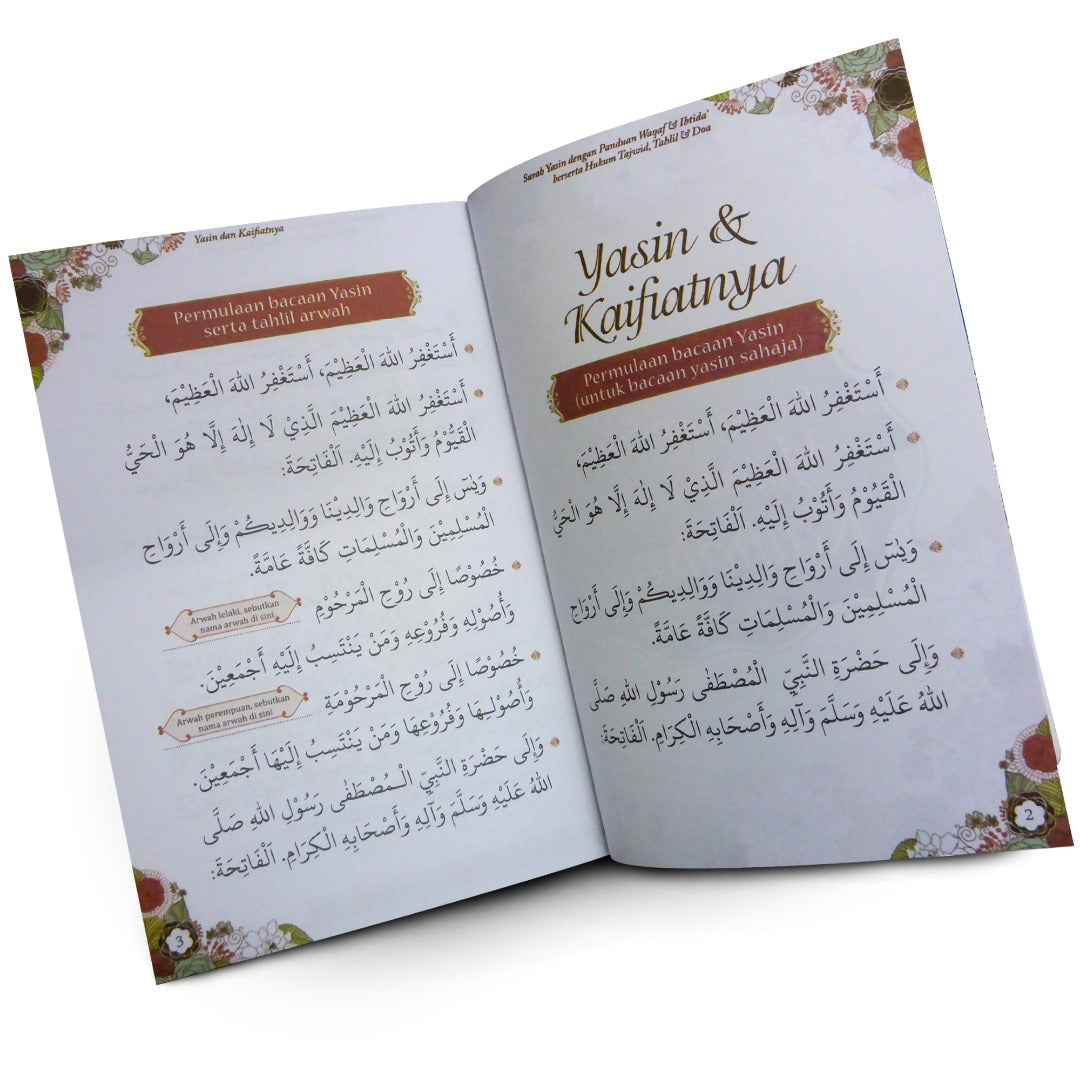 Surah Yasin dengan Panduan Waqaf & Ibtida'
berserta Hukum Tajwid, Tahlil & Doa
Yasin &
Kaifiatnya
Permulaan bacaan Yasin
(untuk bacaan yasin sahaja)
أَسْتَغْفِرُ اللهَ الْعَظِيْمَ، أَسْتَغْفِرُ اللهَ الْعَظِيْمَ،
أَسْتَغْفِرُ اللهَ الْعَظِيْمَ الَّذِيْ لَا إِلٰهَ إِلَّا هُوَ الْحَيُّ
الْقَيُّوْمُ وَأَتُوْبُ إِلَيْهِ. اَلْفَاتِحَةَ:
وَيٰسٓ إِلَى أَرْوَاحِ وَالِدِيْنَا وَوَالِدِيكُمْ وَإِلَى أَرْوَاحِ
الْمُسْلِمِيْنَ وَالْمُسْلِمَاتِ كَافَّةً عَامَّةً.
وَإِلَى حَضْرَةِ النَّبِيِّ الْمُصْطَفٰى رَسُوْلِ اللهِ صَلَّى
اللهُ عَلَيْهِ وَسَلَّمَ وَآلِهِ وَأَصْحَابِهِ الْكِرَامِ. اَلْفَاتِحَةَ:
2
Yasin dan Kaifiatnya
Permulaan bacaan Yasin
serta tahlil arwah
أَسْتَغْفِرُ اللهَ الْعَظِيْمَ، أَسْتَغْفِرُ اللهَ الْعَظِيْمَ،
أَسْتَغْفِرُ اللهَ الْعَظِيْمَ الَّذِيْ لَا إِلٰهَ إِلَّا هُوَ الْحَيُّ
الْقَيُّوْمُ وَأَتُوْبُ إِلَيْهِ. اَلْفَاتِحَةَ:
وَيٰسٓ إِلَى أَرْوَاحِ وَالِدِيْنَا وَوَالِدِيكُمْ وَإِلَى أَرْوَاحِ
الْمُسْلِمِيْنَ وَالْمُسْلِمَاتِ كَافَّةً عَامَّةً.
خُصُوْصًا إِلَى رُوْحِ الْمَرْحُوْمِ
Arwah lelaki, sebutkan
nama arwah di sini
وَأُصُوْلِهِ وَفُرُوْعِهِ وَمَنْ يَنْتَسِبُ إِلَيْهِ أَجْمَعِيْنَ.
خُصُوْصًا إِلَى رُوْحِ الْمَرْحُوْمَةِ
Arwah perempuan, sebutkan
nama arwah di sini
وَأُصُوْلِهَا وَفُرُوْعِهَا وَمَنْ يَنْتَسِبُ إِلَيْهَا أَجْمَعِيْنَ.
وَإِلَى حَضْرَةِ النَّبِيِّ الْمُصْطَفٰى رَسُوْلِ اللهِ صَلَّى
اللهُ عَلَيْهِ وَسَلَّمَ وَآلِهِ وَأَصْحَابِهِ الْكِرَامِ. اَلْفَاتِحَةَ:
3